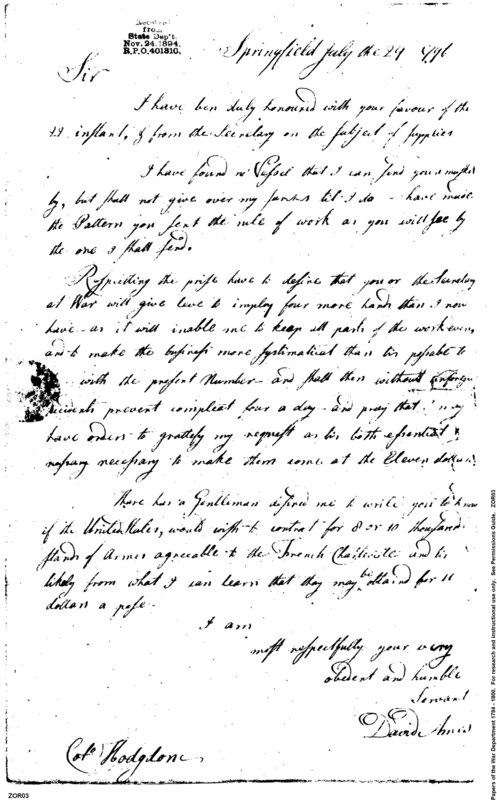 Received
from
State Dep't.
Nov. 24. 1894.
R.P.O. 401310.
Springfield July the 29 1796
Sir
I have ben duly honoured with your favour of the
22 instant, & from the Secretary on the subject of supplies
I have found no Vessel that I can send you a musket
by, but shall not give over my til I do - have made
the Pattern you sent the rule of work as you will see by
the one I shall send.
Respecting the prise have to desire that you or the Secretary
at War will give leve to imploy four more hands than I now
have - as it will inable me to keep all parts of the work even,
and to make the business more systimatical than tis posable to
with the present Number - and shall then without unforeseen
accidents prevent compleat four a day - and pray that I may
have orders to gratefy my request as tis both essential &
necessary to make them come at the Eleven dollars.
There has a Gentleman desired me to write you to know
if the United States, would wish to contract for 8 or 10 thousand
stands of Armes agreeable to the French Charlevile and tis
likely from what I can learn that they may be obtained for 11
dollars a pese -
I am
most respectfully your very
obedent and humble
Servant
David Ames
Colo. Hodgdon
ZOR03
Papers of the War Department 1784 - 1800. For research and instructional use only. See Permissions Guide. ZOR03